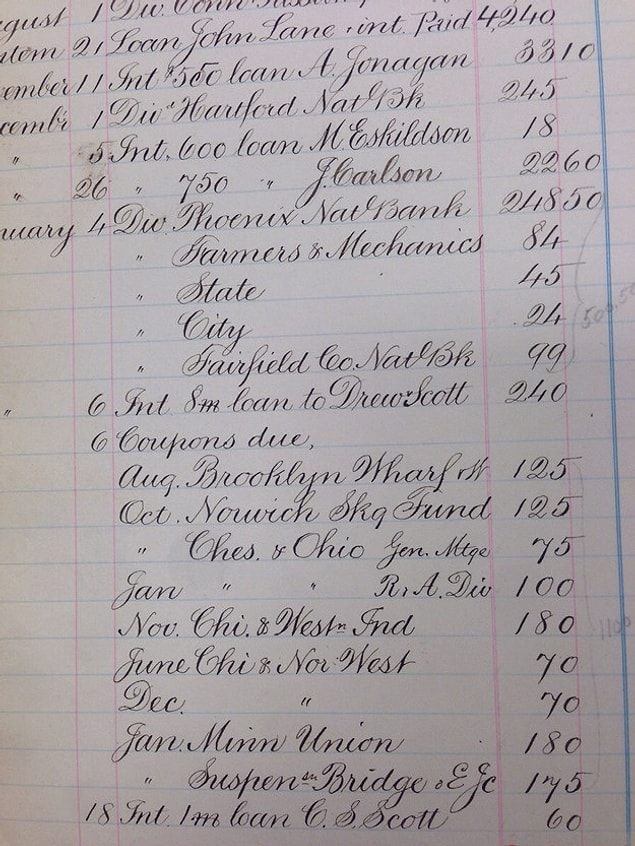 gust 1 Div. Conn.
tem 21 Loan John Lane & int. Paid 4,240
ember 11 Int $550 loan A. Jonagan 33 10
cembr 1 Div Hartford Natl Bk 245
" 5 Int, 600 loan M. Eskildson 18
" 26 " 750 " J. Carlson 22 60
nuary 4 Div Phoenix Natl Bank 248 50
" Farmers & Mechanics 84
" State 45
" City 24
" Fairfield Co. Natl Bk 99
" 6 Int 8m loan to Drew Scott 240
6 Coupons due,
Aug. Brooklyn Wharf & W 125
Oct. Norwich Skg Fund 125
" Ches. & Ohio Gen. Mtge 75
Jan " " R. & A. Div 100
Nov. Chi. & Westn Ind 180
June Chi & Nor West 70
Dec. " 70
Jan. Minn Union 180
" Suspensn Bridge & E Jc 175
18 Int. 1m loan C. S. Scott 60